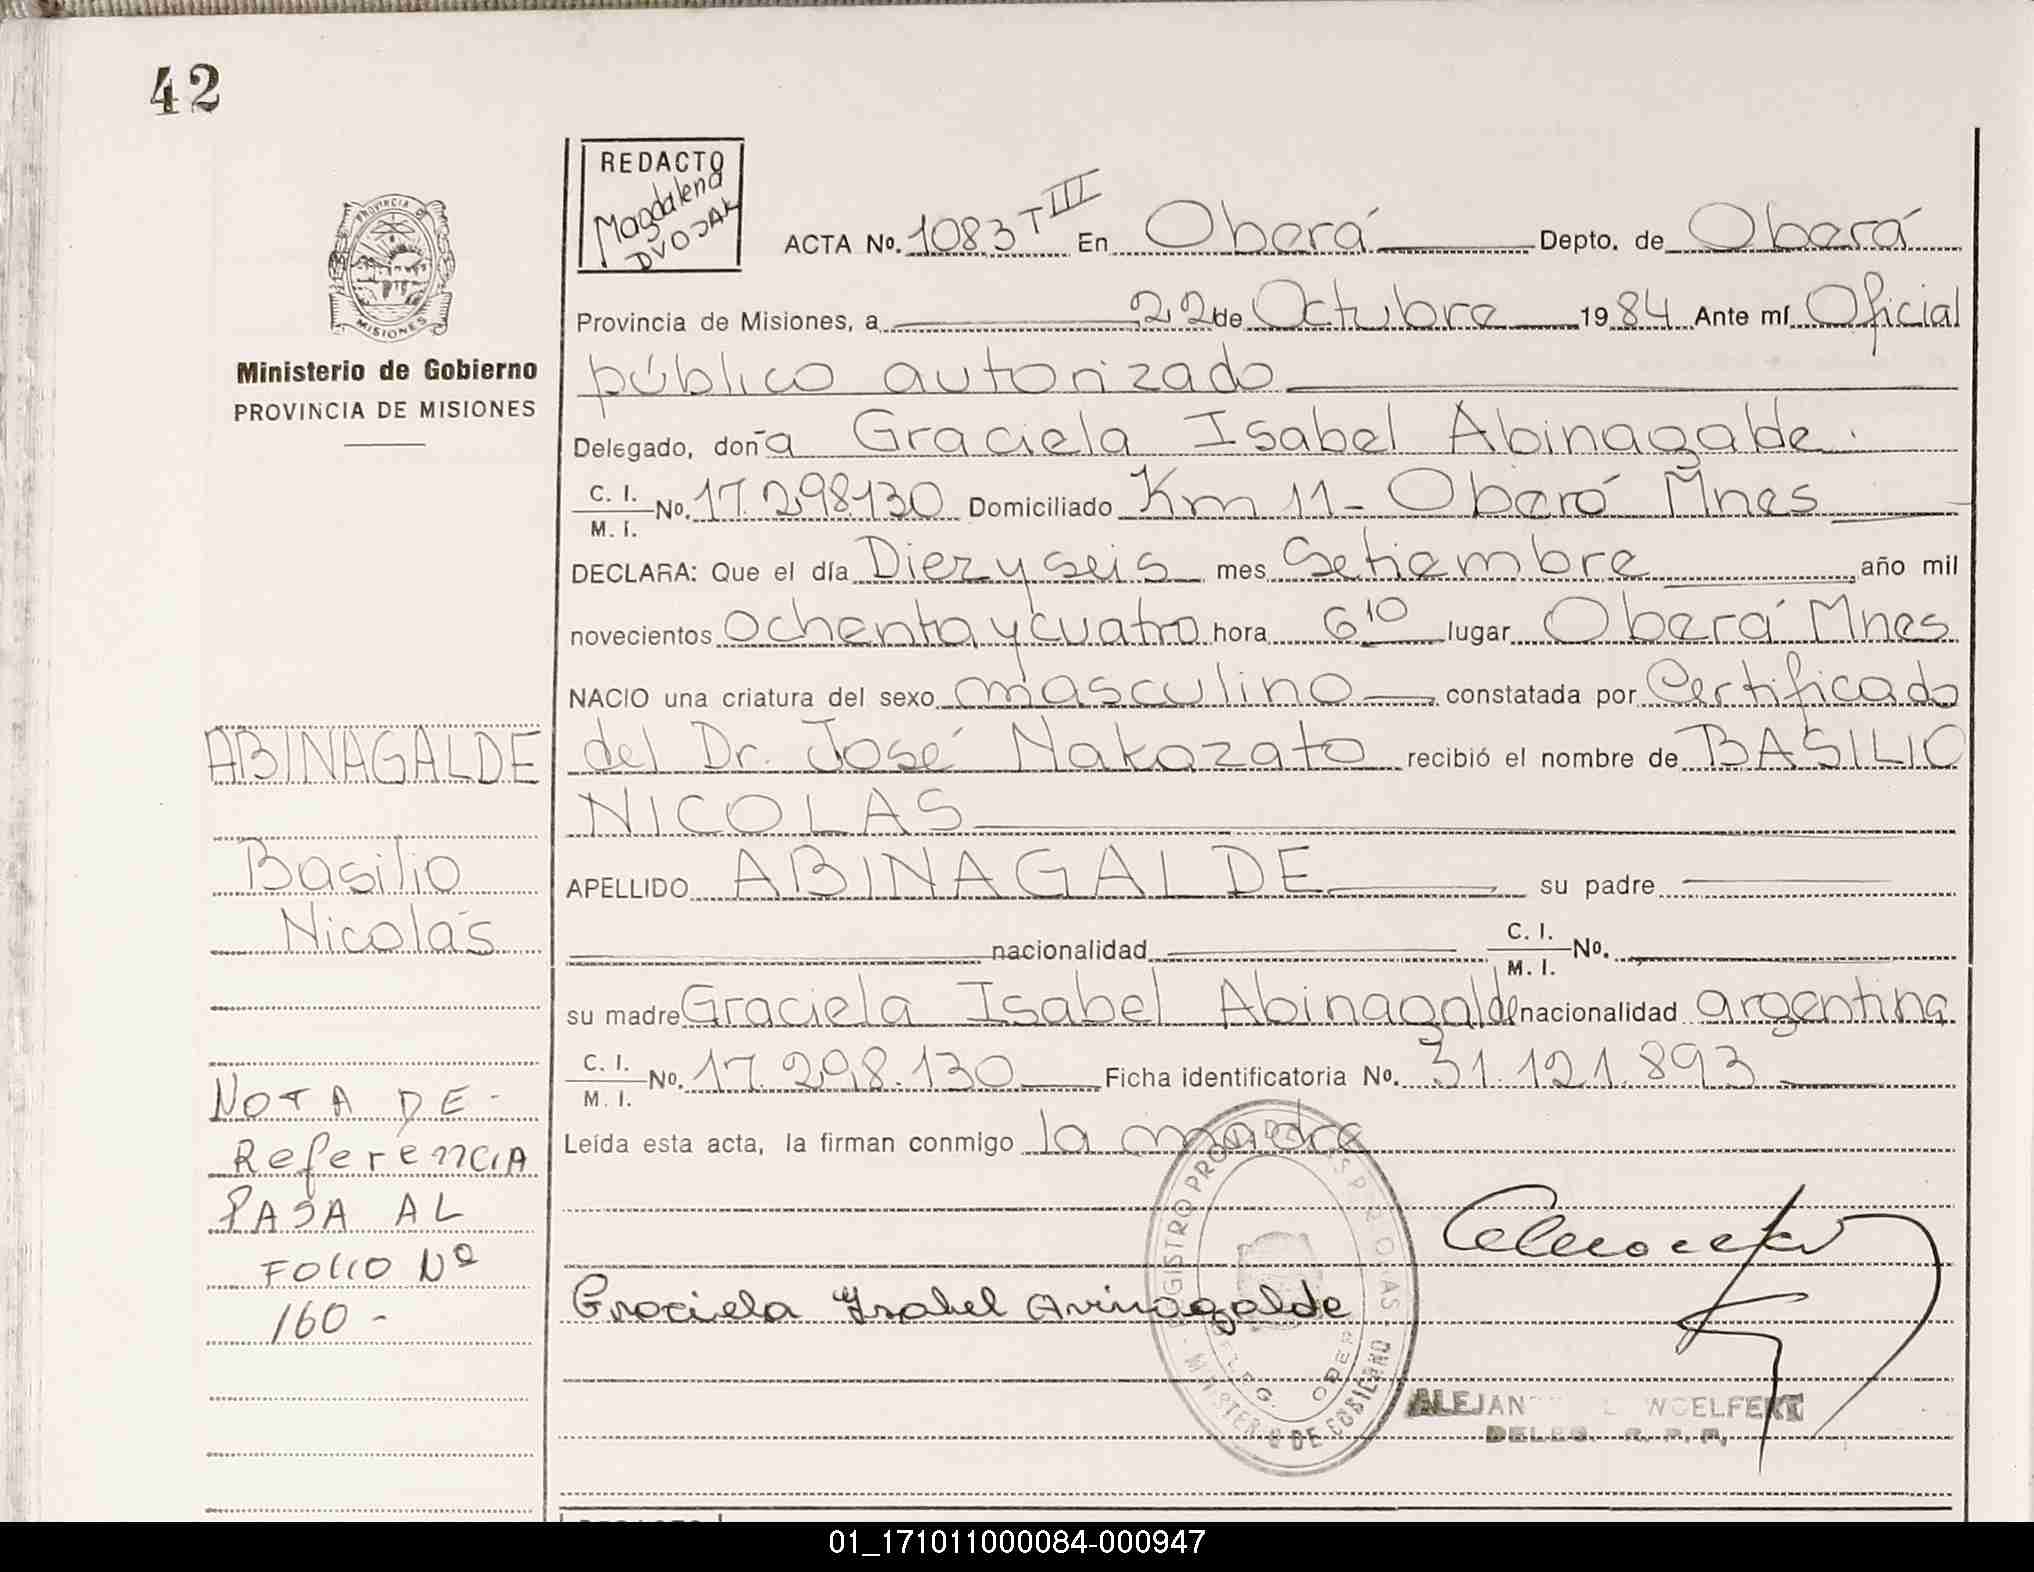 42
REDACTO
Magdalena
DVOJAK
ACTA No. 1083 T III En Oberá Depto. de Oberá
PROVINCIA DE
MISIONES
Provincia de Misiones, a 22 de Octubre 1984 Ante mí Oficial
público autorizado
Ministerio de Gobierno
PROVINCIA DE MISIONES
Delegado, doña Graciela Isabel Abinagalde.
C. I.
M. I. No. 17.298130 Domiciliado Km 11 - Oberá Mnes
DECLARA: Que el día Diez y seis mes Setiembre año mil
novecientos ochenta y cuatro hora 6 10 lugar Oberá Mnes
NACIO una criatura del sexo masculino constatada por Certificado
del Dr. José Nakazato recibió el nombre de BASILIO
NICOLAS
APELLIDO ABINAGALDE su padre
nacionalidad C. I.
M. I. No.
su madre Graciela Isabel Abinagalde nacionalidad argentina
C. I.
M. I. No. 17.298.130 Ficha identificatoria No. 31.121.893
Leída esta acta, la firman conmigo la madre
Graciela Ysabel Avinagalde
REGISTRO PRO DE LAS PERSONAS
MINISTERIO DE GOBIERNO
DELEG. OBERA
ALEJAN WOELFERT
DELEG. R. P. P.
ABINAGALDE
Basilio
Nicolás
NOTA DE -
Referencia
PASA AL
FOLIO Nº
160 -
REDACTO
01_171011000084-000947